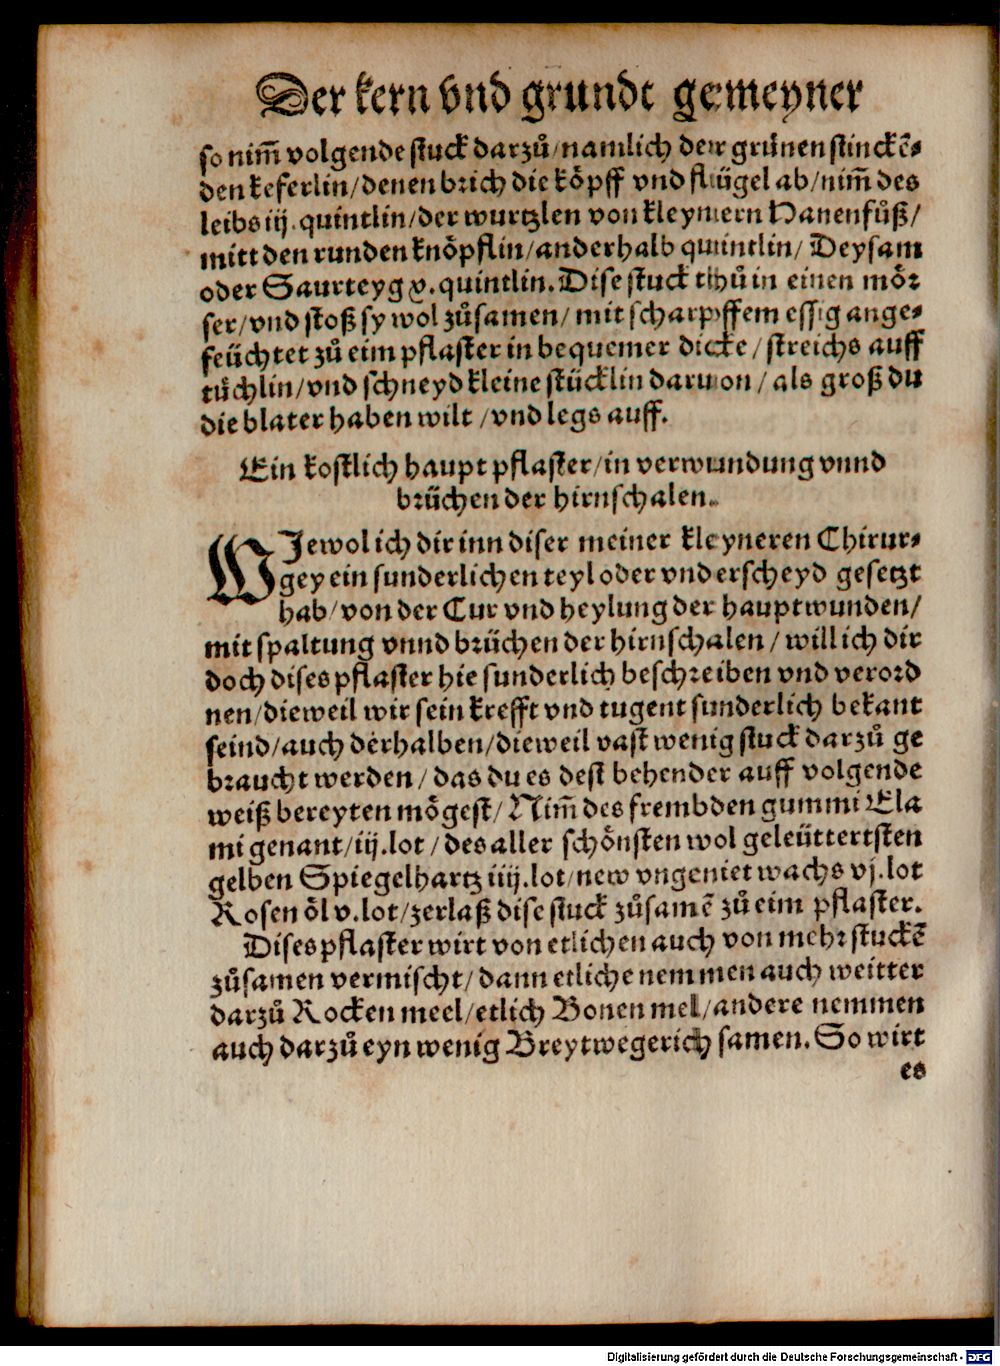 Der kern vnd grundt gemeyner
so nim̃ volgende stuck darzů/namlich der grünen stinckẽ-
den keferlin/denen brich die köpff vnd flügel ab/nim̃ des
leibs iij.quintlin/der wurtzlen von kleynern Hanenfůß/
mitt den runden knöpflin/anderhalb quintlin/ Deysam
oder Saurteyg v.quintlin.Dise stuck thů in einen mör
ser/vnd stoß sy wol zůsamen/mit scharpffem essig ange-
feüchtet zů eim pflaster in bequemer dicke/streichs auff
tůchlin/vnd schneyd kleine stücklin daruon/als groß du
die blater haben wilt/vnd legs auff.
Ein kostlich haupt pflaster/in verwundung vnnd
brüchen der hirnschalen.
WJewol ich dir inn diser meiner kleyneren Chirur-
gey ein sunderlichen teyl oder vnderscheyd gesetzt
hab/von der Cur vnd heylung der hauptwunden/
mit spaltung vnnd brüchen der hirnschalen/will ich dir
doch dises pflaster hie sunderlich beschreiben vnd verord
nen/dieweil wir sein krefft vnd tugent sunderlich bekant
seind/auch derhalben/dieweil vast wenig stuck darzů ge
braucht werden/das du es dest behender auff volgende
weiß bereyten mögest/Nim̃ des frembden gummi Ela
mi genant/iij.lot/des aller schönsten wol geleüttertsten
gelben Spiegelhartz iiij.lot/new vngenietwachs vj.lot
Rosen öl v.lot/zerlaß dise stuck zůsamẽ zů eim pflaster.
Dises pflaster wirt von etlichen auch von mehr stuckẽ
zůsamen vermischt/dann etliche nemmen auch weitter
darzů Rocken meel/etlich Bonen mel/andere nemmen
auch darzů eyn wenig Breytwegerich samen.So wirt
es
Digitalisierung gefördert durch die Deutsche Forschungsgemeinschaft - DFG